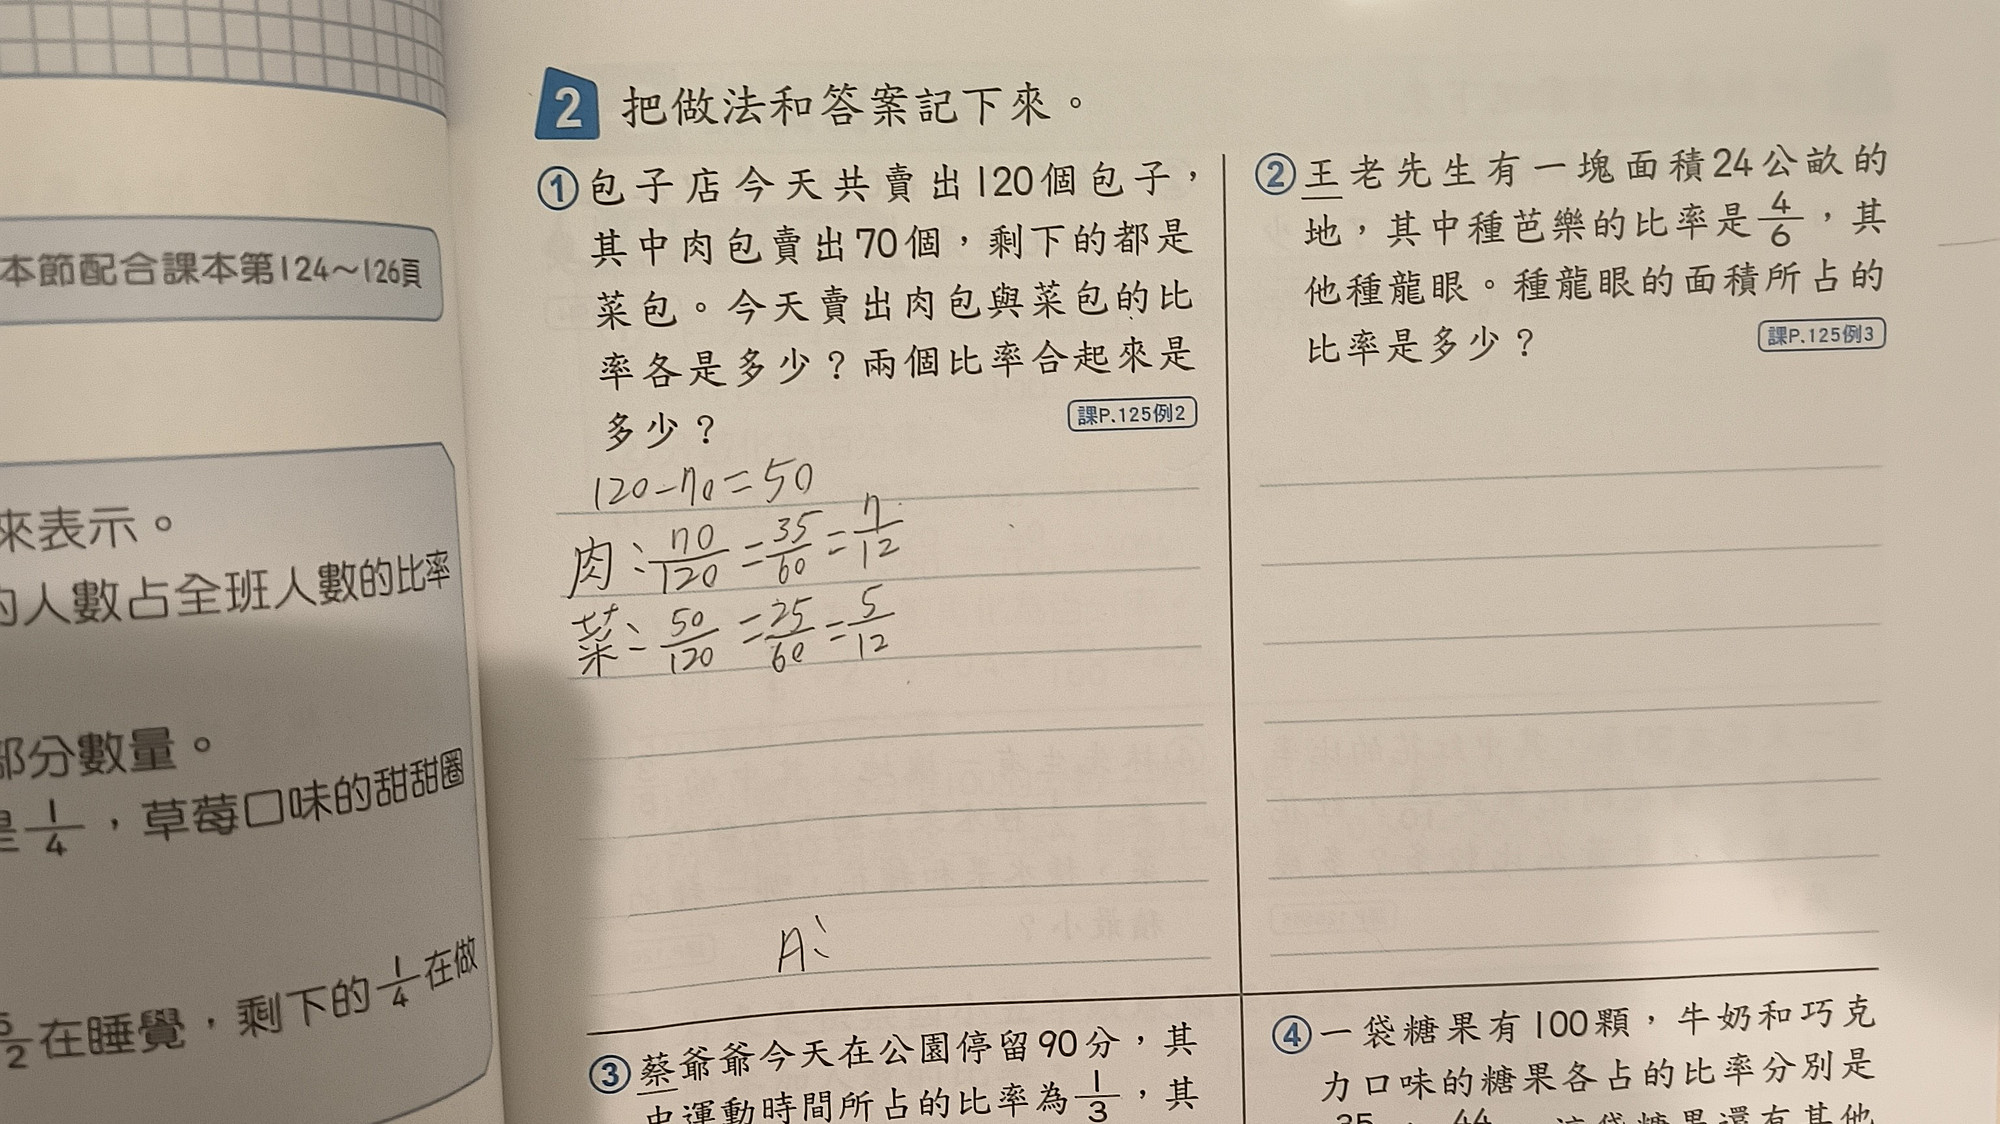 本節配合課本第124～126頁
來表示。
的人數占全班人數的比率
部分數量。
是1/4，草莓口味的甜甜圈
在睡覺，剩下的1/4在做
2 把做法和答案記下來。
①包子店今天共賣出120個包子，
其中肉包賣出70個，剩下的都是
菜包。今天賣出肉包與菜包的比
率各是多少？兩個比率合起來是
多少？
課P.125例2
120-70=50
肉：70/120=35/60=7/12
菜：50/120=25/60=5/12
A：
②王老先生有一塊面積24公畝的
地，其中種芭樂的比率是4/6，其
他種龍眼。種龍眼的面積所占的
比率是多少？
課P.125例3
③蔡爺爺今天在公園停留90分，其
中運動時間所占的比率為1/3，其
④一袋糖果有100顆，牛奶和巧克
力口味的糖果各占的比率分別是
35 44 這袋糖果還有其他